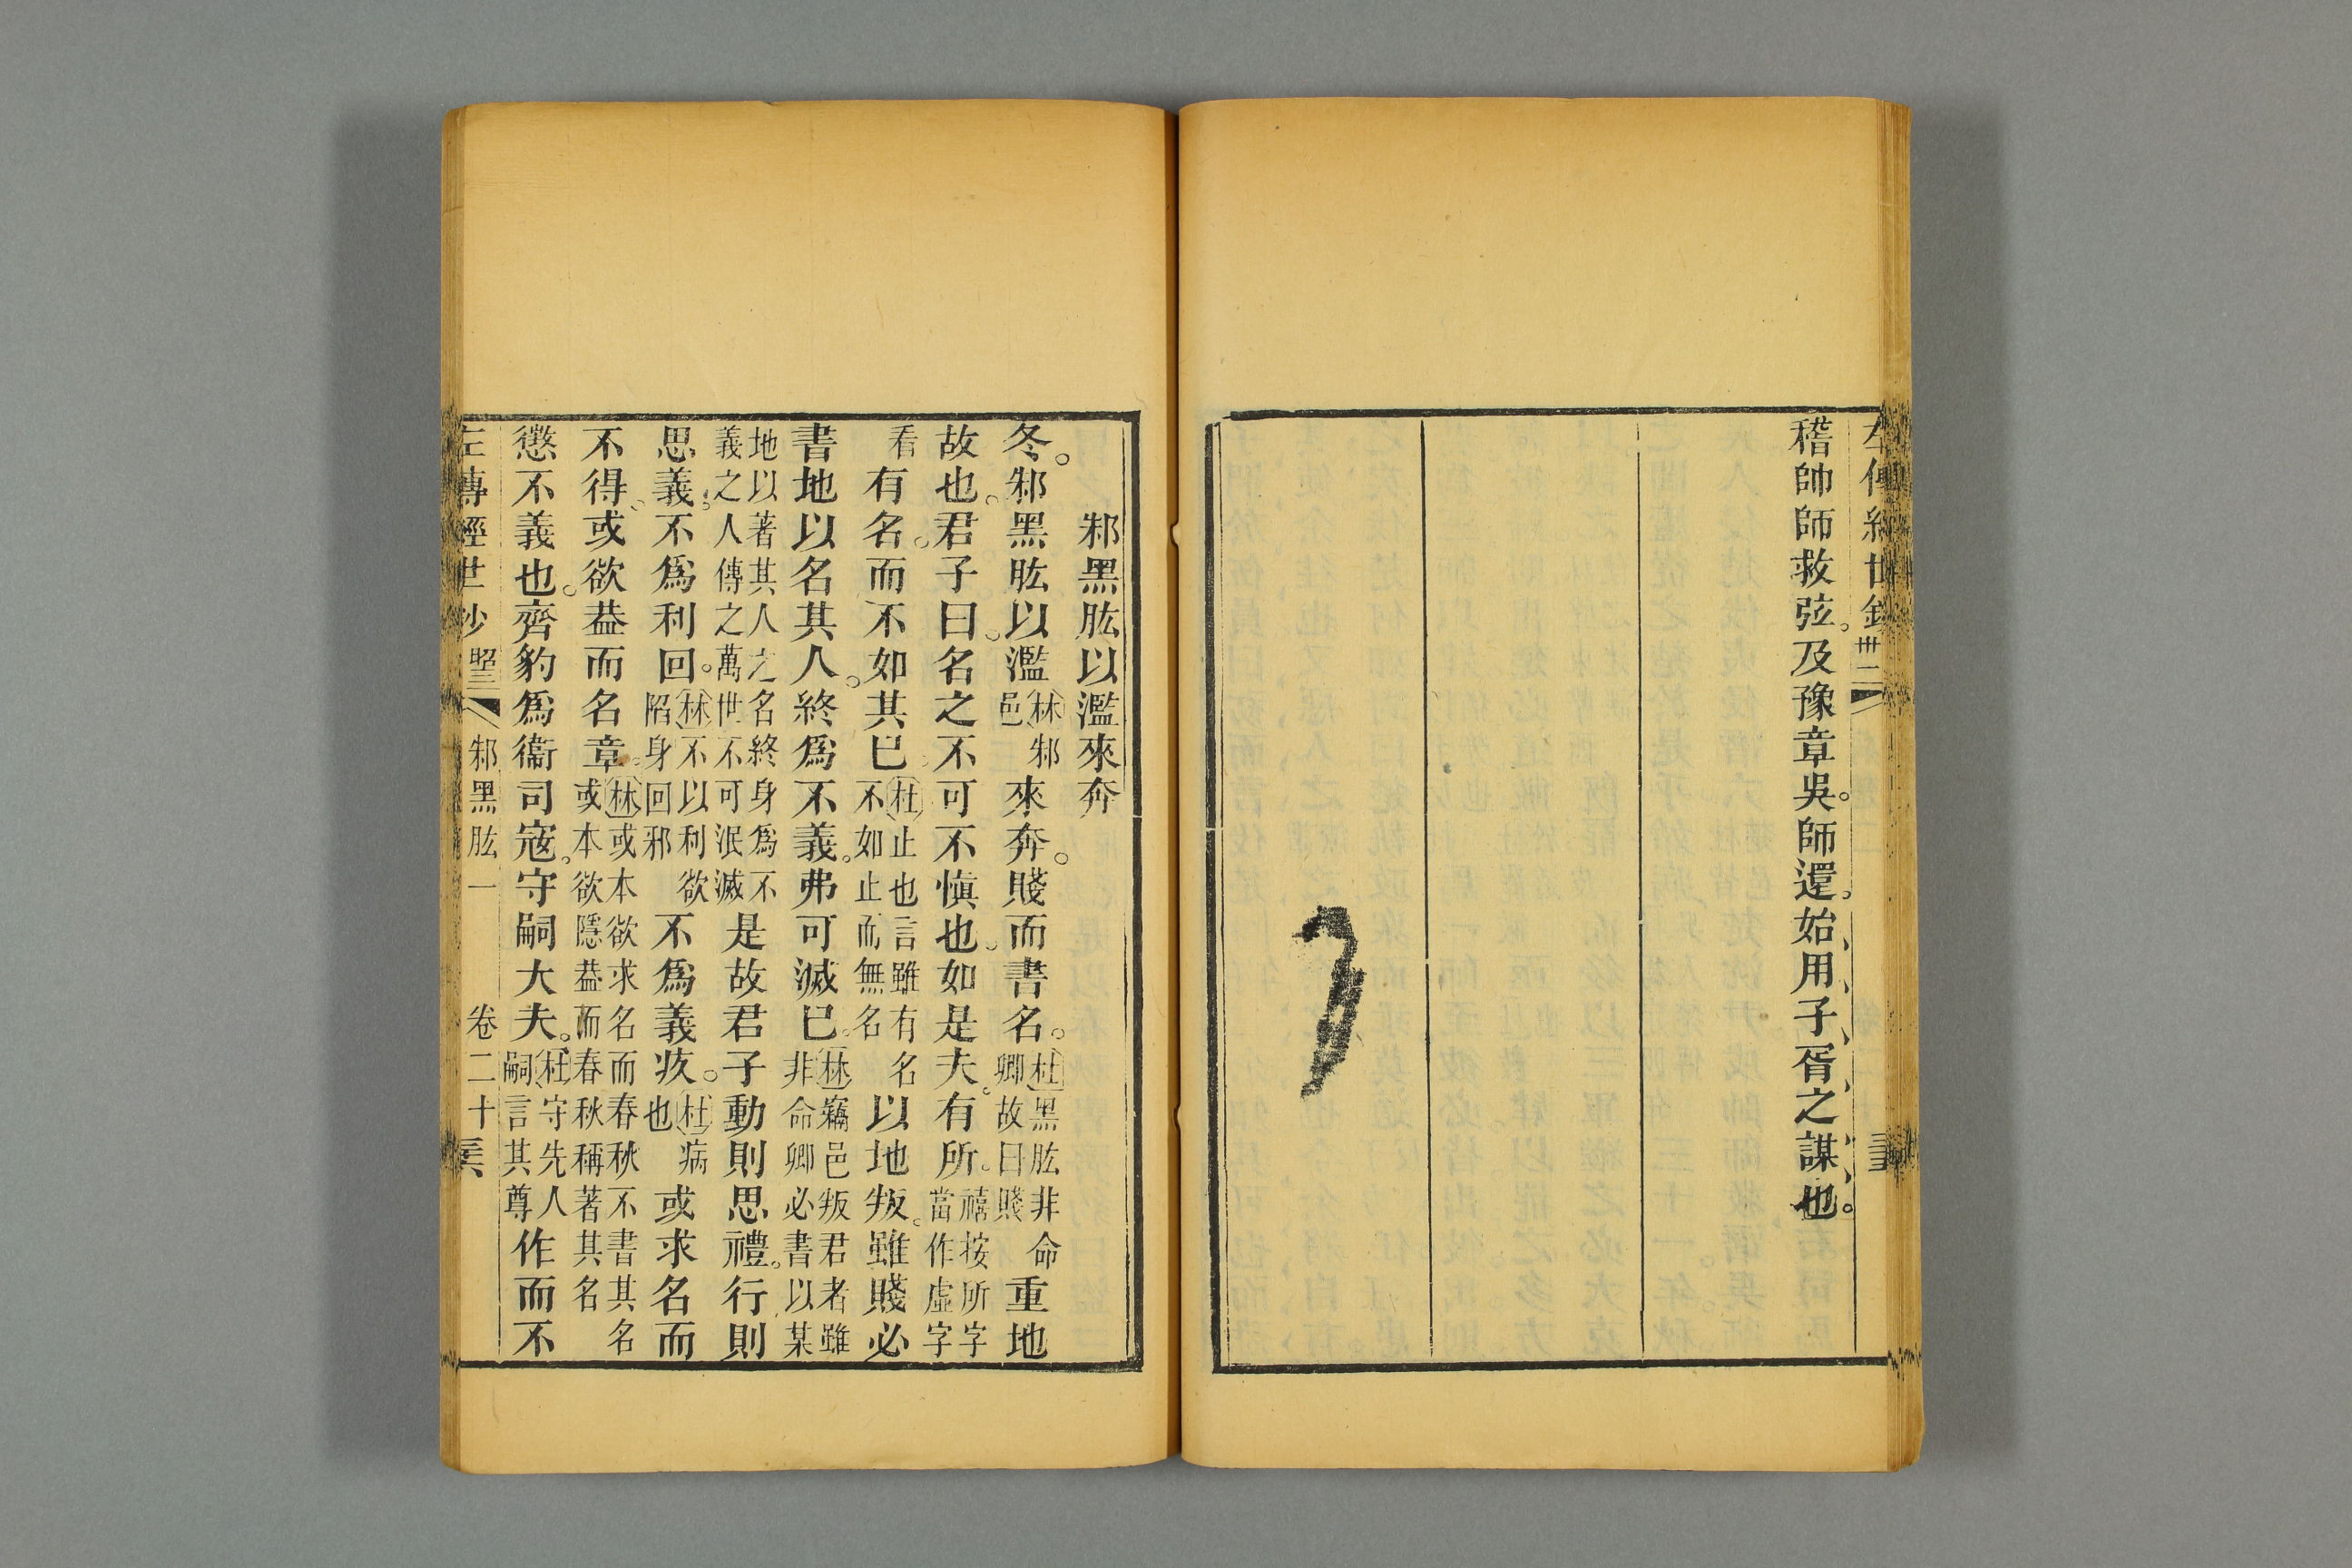 稽帥師救弦。及豫章吳。師還。始用子胥之謀也。
邾黑肱以濫來奔
冬。邾黑肱以濫林邾邑來奔。賤而書名。杜黑肱非命卿故曰賤重地
故也。君子曰。名之不可不慎也。如是夫。有所。禧按所字當作虛字
看有名。而不如其已。杜止也言雖有名不如止而無名以地叛。雖賤必
書地以名其人。終爲不義。弗可滅已。林竊邑叛君者雖非命卿必書以某
地以著其人之名終身爲不義之人傳之萬世不可泯滅是故君子動則思禮。行則
思義。不爲利回。林不以利欲陷身回邪不爲義疚。杜病也或求名而
不得。或欲葢而名章。林或本欲求名而春秋不書其名或本欲隱葢而春秋稱著其名
懲不義也。齊豹爲衞司寇。守嗣大夫。杜守先人嗣言其尊作而不
左傳經世鈔 邾黑肱一 卷二十